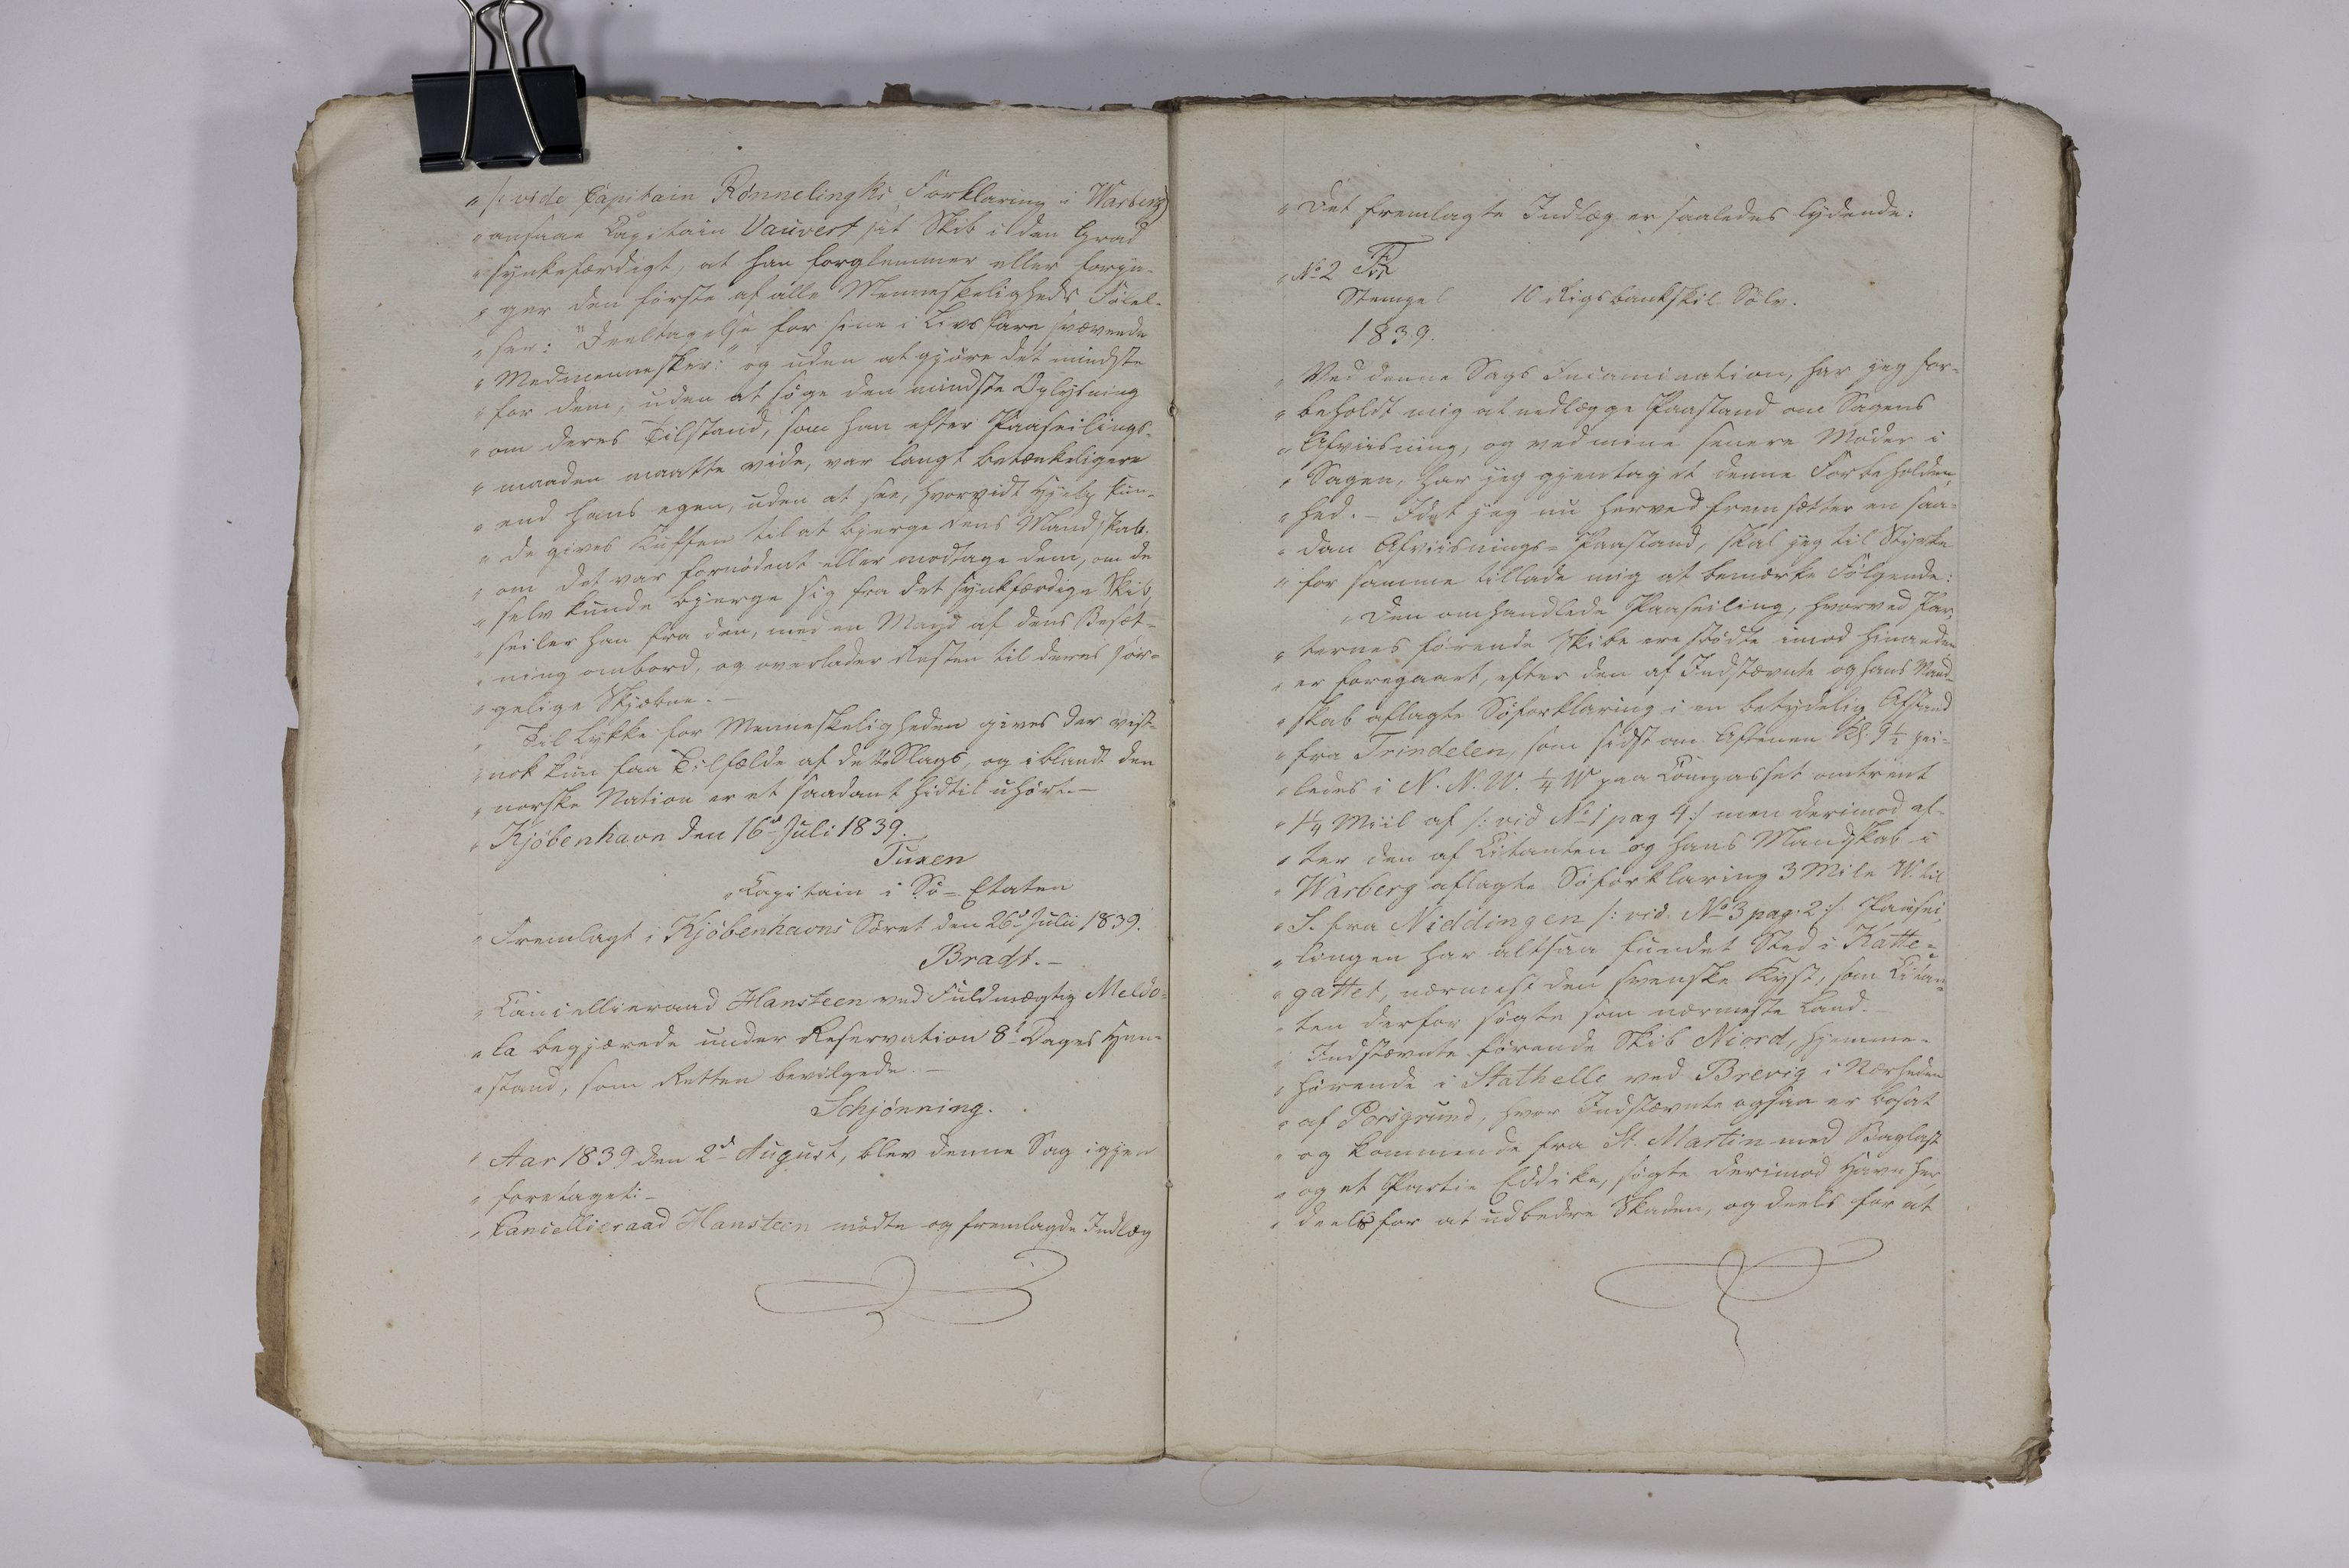 " /: vide Capitain Rönnelingks Forklaring i Warberg)
" ansaae Capitain Vauvert sit Skib i den Grad
" synkefærdigt, at han forglemmer eller foryn-
" ger den första af alle Menneskeligheds Fölel-
" ser: "Deeltagelse for sine i Livsfare svævende
" Medmennesker:" og uden at gjöre det mindste
" for dem, uden at söge den mindste Oplysning
" om deres Tilstand, som han efter Paaseilings-
" maaden maatte vide, var langt betænkeligere
" end hans egen, uden at see, hvorvidt Hjelp kun-
" de gives Kuffen til at bjerge dens Mandskab,
" om det var fornödent eller modtage dem, om de
" selv kunde bjerge sig fra det synkfærdige Skib,
" seiler han fra den, med en Mand af dens Besæt-
" ning ombord, og overlader Resten til deres sör-
" gelige Skjæbne. —
" Til Lykke for Menneskeligheden gives der vist-
" nok kun faa Tilfælde af dette Slags, og iblandt den
" norske Nation er et saadant hidtil uhört. —
" Kjöbenhavn den 16d Juli 1839.
Tuxen
" Capitain i Sö-Etaten
" Fremlagt i Kjöbenhavns Söret den 26d Julii 1839.
Bradt. —
" Cancellieraad Hansteen ved Fuldmægtig Meldo-
" la begjærede under Reservation 8t Dages Hen-
" stand, som Retten bevilgede. —
Schjönning.
" Aar 1839 den 2d August, blev denne Sag igjen
" foretaget: —
" Cancellieraad Hansteen mödte og fremlagde Indlæg
" Det fremlagte Indlæg er saaledes lydende:
" No 2
Stempel 10 Rigsbankskil Sölv.
1839.
" Ved denne Sags Incamination, har jeg for-
" beholdt mig at nedlægge Paastand om Sagens
" Afviisning, og ved mine senere Möder i
" Sagen, har jeg gjentaget denne Forbeholden-
" hed. — Idet jeg nu herved fremsætter en saa-
" dan Afviisnings-Paastand, skal jeg til Styrke
" for samme tillade mig at bemærke Fölgende:
" Den omhandlede Paaseiling, hvorved Par-
" ternes förende Skibe ere stödte imod hinanden
" er foregaaet, efter den af Indstævnte og hans Mand-
" skab aflagte Söforklaring i en betydelig Afstand
" fra Trindelen, som sidst om Aftenen Kl. 9½ pei-
" ledes i N. N. W. ¼ W paa Compasset omtrent
" 1¼ Miil af /: vid No 1 pag 4:/ men derimod ef-
" ter den af Citanten og hans Mandskab i
" Warberg aflagte Söforklaring 3 Mile W. til
" S. fra Niddingen /: vid. No 3 pag. 2:/ Paasei-
" lingen har altsaa fundet Sted i Katte-
" gattet, nærmest den svenske Kyst, som Citan-
" ten derfor sögte som nærmeste Land. —
" Indstævnte förende Skib Niord, hjemme-
" hörende i Stathelle ved Brevig i Nærheden
" af Porsgrund, hvor Indstævnte ogsaa er bosat
" og kommende fra St. Martin med Baglast
" og et Partie Eddike, sögte derimod Havn her
" deels for at udbedre Skaden, og deels for at